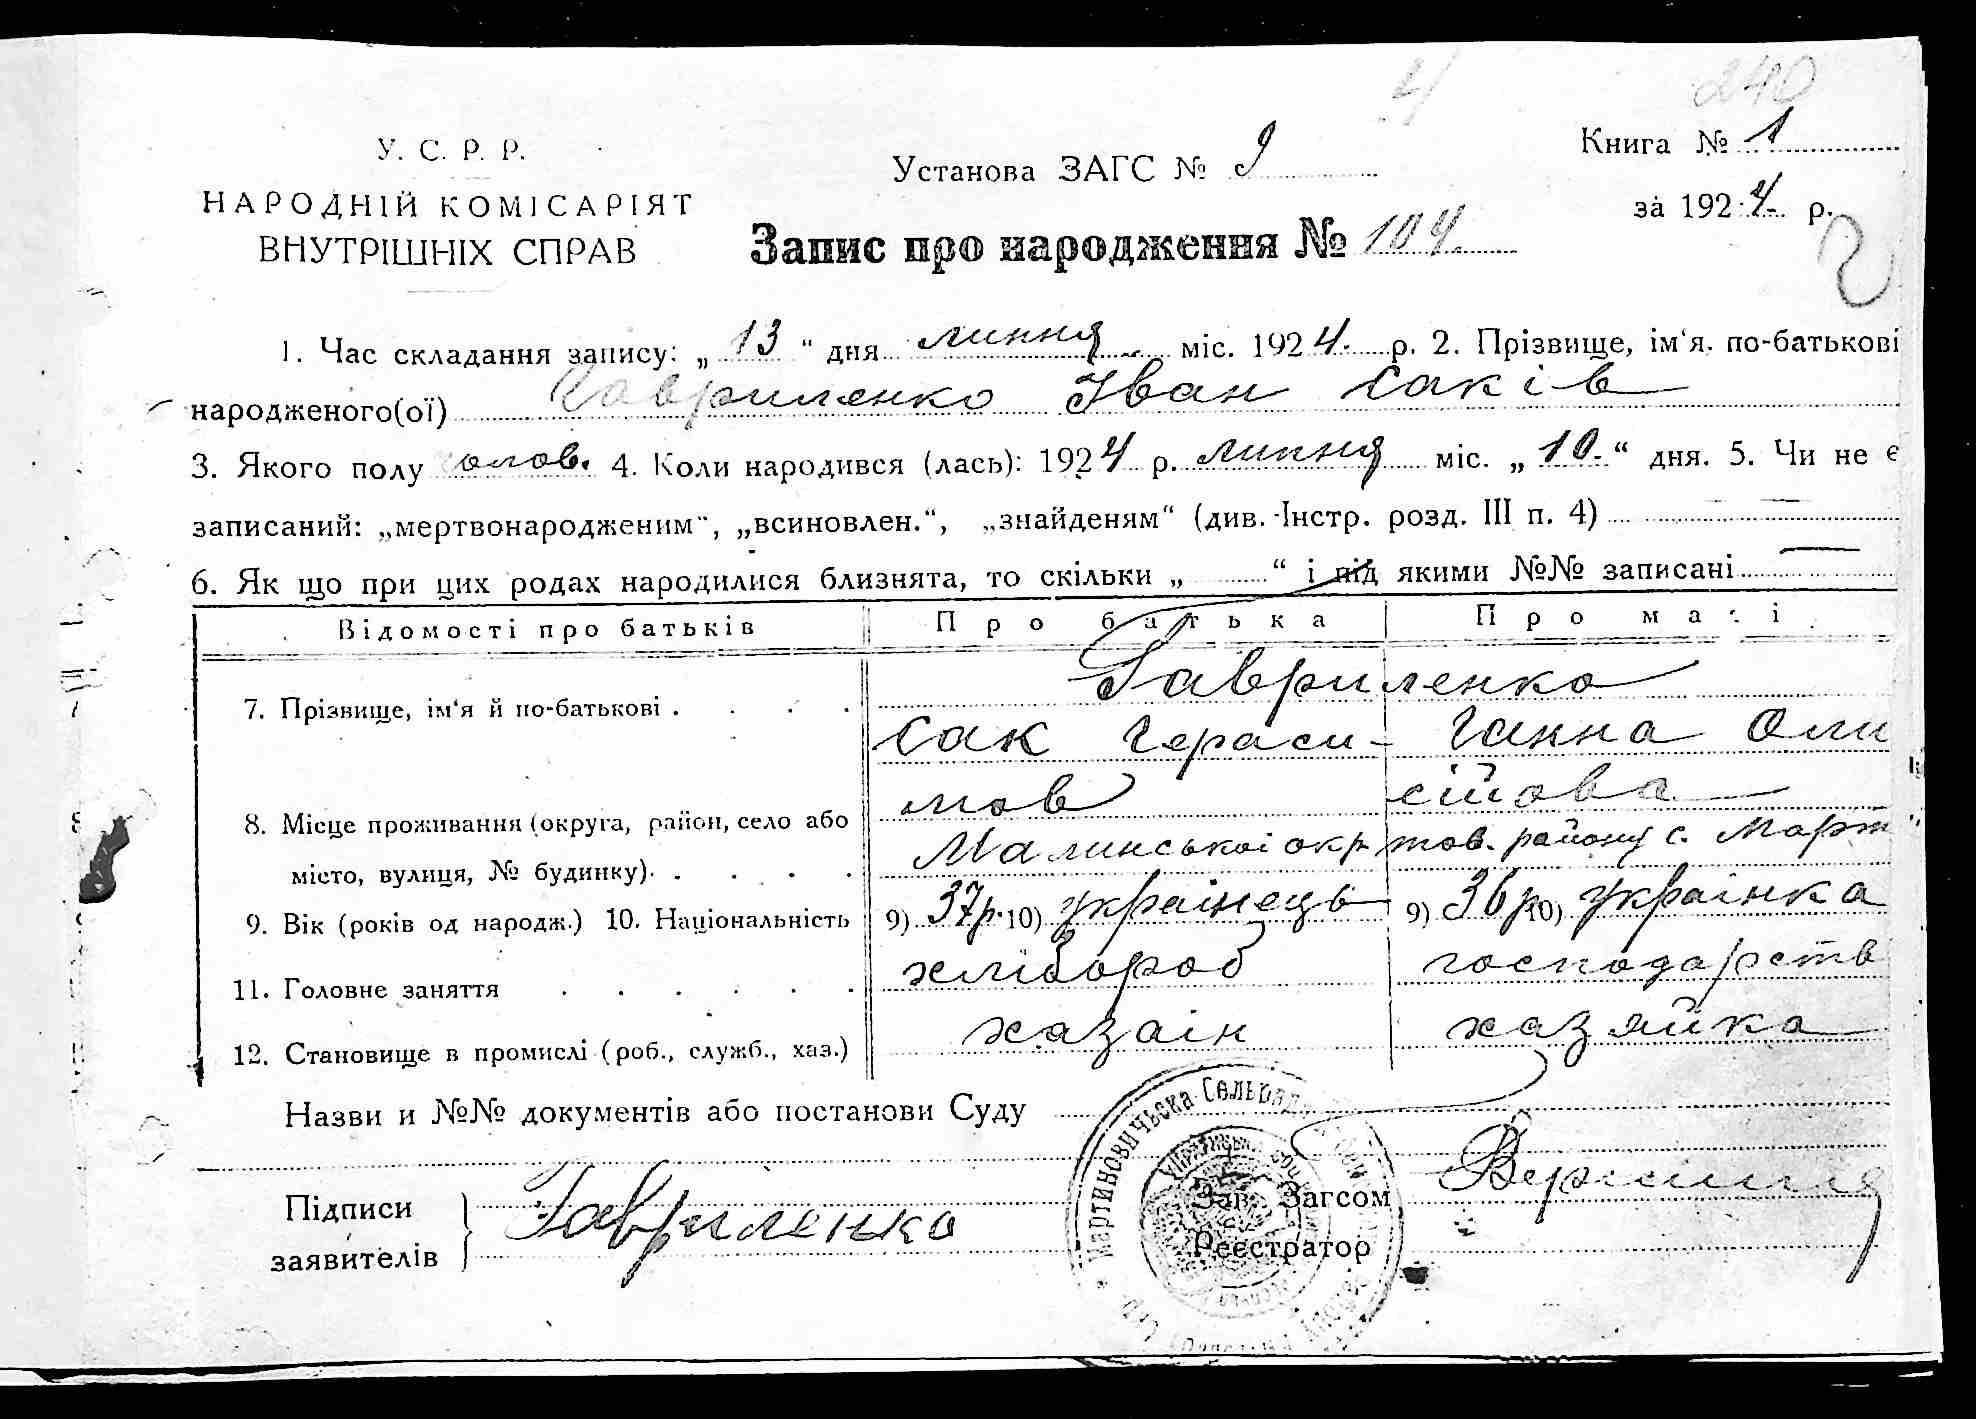 240
У. С. Р. Р.
НАРОДНІЙ КОМІСАРІЯТ
ВНУТРІШНІХ СПРАВ
Установа ЗАГС № 9
Книга № 1
за 1924 р.
Запис про народження № 104
1. Час складання запису: „13“ дня липня міс. 1924. р. 2. Прізвище, ім‘я. по-батькові
народженого(ої) Гавриленко Іван Саків
3. Якого полу чолов. 4. Коли народився (лась): 1924 р. липня міс. „10.“ дня. 5. Чи не є
записаний: „мертвонародженим“, „всиновлен.“, „знайденям“ (див. Інстр. розд. III п. 4)
6. Як що при цих родах народилися близнята, то скільки „ “ і під якими №№ записані
Відомості про батьків Про батька Про маті
7. Прізвище, ім‘я й по-батькові . . . . Гавриленко
Сак Гераси- Ганна Оли
мов сійова
8. Місце проживання (округа, район, село або
місто, вулиця, № будинку) . . . . Малинської окр. мов. району с. Март
9. Вік (років од народж.) 10. Національність 9) 37р. 10) українець 9) 36р 10) українка
11. Головне заняття . . . . . . хлібороб господарств
12. Становище в промислі (роб., служб., хаз.) хазаін хазяйка
Назви и №№ документів або постанови Суду
Підписи
заявителів
Гавриленко
Мартиновичьска Сельрада
Зав. Загсом
Реєстратор